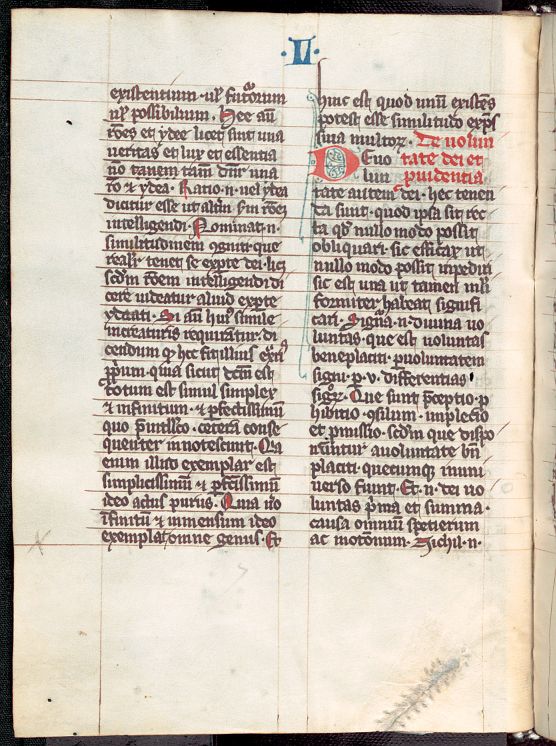 ·II·
existentium · ul' futurorum
ul' possibilium. Hee aut
rones et ydee licet sint una
ueritas et lux et essentia
no tamen tam dnr una
ro et ydea. Ratio · n · uel ydea
dicitur esse ut alim fm roez
intelligendi. Nominat · n ·
similitudinem cogniti que
realr tenet se ex parte dei · lic
scdm rodem intelligendi di
cere uideatur aliud ex parte
ydeati. Si aut hui' simile
in creaturis requiratur · di
cendum q hec fit illius exti
pprium · quia sicut dcm est
totum est simul simplex
et infinitum · et pfectissimum
quo pintllco · cetera conse
quenter innotescunt. Qa
enim illud exemplar est
simplicissimu et pfctissimu
ideo actus purus. Quia uo
infinitu et inmensum ideo
exemplat omne genus. Et
hinc est quod unu existes
potest esse similitudo exps
siua multoz. De uolun
tate dei et
puidentia
Deuo
lun
tate autem dei · hec tenen
da sunt · quod ipsa sit rec
ta qd nullo modo possit
obliquari · sic efficax ut
nullo modo possit inpediri
sic est una ut tamen ml'ti
formiter habeat signifi
cari. Signa · n · diuina uo
luntas · que est uoluntas
beneplaciti · p uoluntatem
signi · p · v · differentias
signoz. Que sunt pceptio · p
hibitio · gsilium · impletio
et pmissio · scdm que dispo
nuntur a uoluntate bn
placiti · quecumq in uni
uerso fiunt. Et · n · dei uo
luntas pma et summa ·
causa omniu specierum
ac motionum. Nichil · n ·